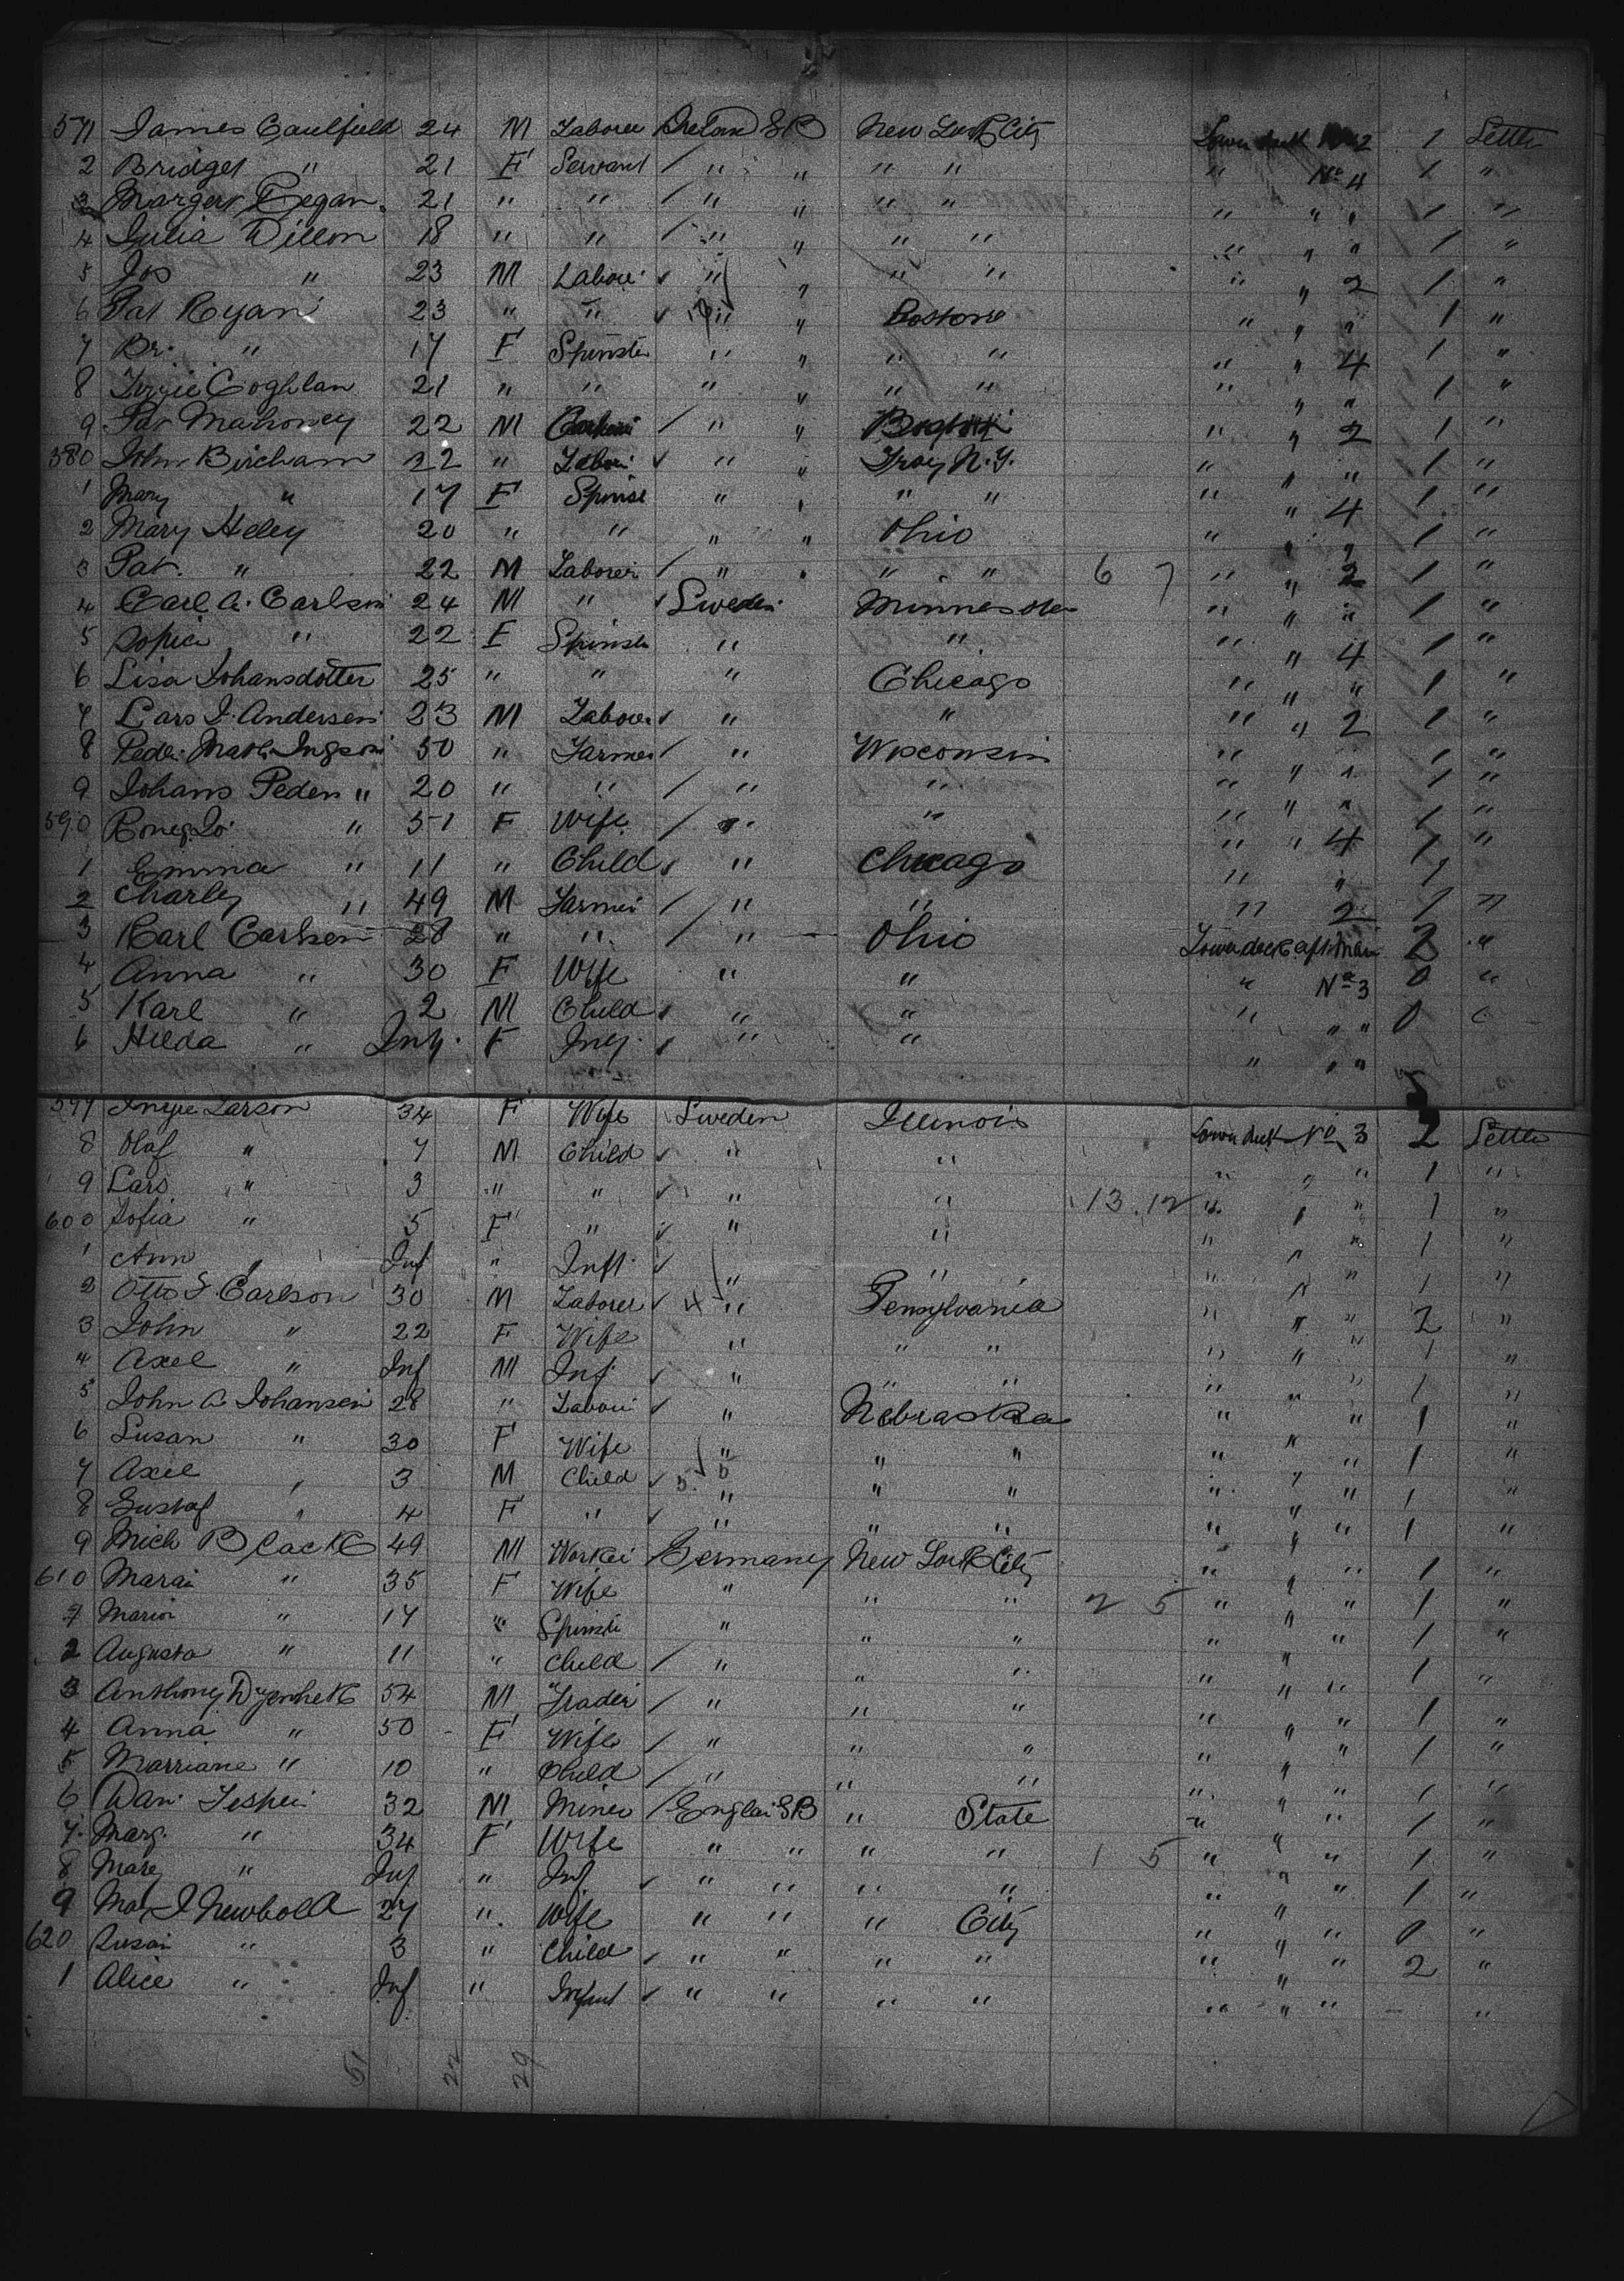 571 James Caulfield 24 M Laborer Ireland GB New York City Lower deck No 2 1 Settle
2 Bridget " 21 F Servant / " " " " " No 4 1 "
3 Margert Regan 21 " " / " " " " " " " 1 "
4 Julia Dillon 18 " " / " " " " " " " 1 "
5 Jos " 23 M Labore ✓ " " " " " " 2 1 "
6 Pat Ryan 23 " " ✓ " " Boston " " " 1 "
7 Br. " 17 F Spinster " " " " " " 4 1 "
8 Coghlan 21 " " " " " " " " " 1 "
9 Pat Mahoney 22 M / " " " " 2 1 "
580 John Bircham 22 " Labor ✓ " " Troy N.Y. " " " 1 "
1 Mary " 17 F Spinst " " " " " " 4 1 "
2 Mary Heley 20 " " " " Ohio " " " 1 "
3 Pat. " 22 M Laborer / " " " " 6 7 " " 2 1 "
4 Carl A. Carlson 24 M " ✓ Sweden Minnesota " " " 1 "
5 Sofia " 22 F Spinste " " " " 4 1 "
6 Lisa Johansdotter 25 " " " Chicago " " " 1 "
7 Lars J. Andersen 23 M Labore ✓ " " " " 2 1 "
8 Peder. Math. Ingson 50 " Farmer / " Wisconsin " " " 1 "
9 Johans Peden " 20 " " / " " " " " 1 "
590 " 51 F Wife / " " " " 4 1 "
1 Emma " 11 " Child ✓ " Chicago " " 1
2 Charley " 49 M Farmer / " " " 2 1 "
3 Karl Carlsen 28 " " / " Ohio Lower deck aft Main 2 "
4 Anna " 30 F Wife " " " No 3 0 "
5 Karl " 2 M Child ✓ " " " " " 0 "
6 Hilda " Inf. F Inf. ✓ " " " " "
597 Ingre Larson 34 F Wife Sweden Illinois Lower deck No 3 2 Settle
8 Olaf " 7 M Child ✓ " " " " " 1 "
9 Lars " 3 " " ✓ " " 13 . 12 " " " 1 "
600 Sofia " 5 F " ✓ " " " " " 1 "
1 Ann " Inf " Inft. ✓ " " " " " 1 "
2 Otto S. Carlson 30 M Laborer ✓ 4 " Pensylvania " " " 2 "
3 John " 22 F Wife " " " " " " 1 "
4 Axel " Inf M Inf. ✓ " " " " " " 1 "
5 John A Johansen 28 " Labori ✓ " Nebraska " " " 1 "
6 Susan " 30 F Wife " " " " " " 1 "
7 Axel " 3 M Child ✓ 5 " " " " " " 1 "
8 Gustaf " 4 F " ✓ " " " " " " 1 "
9 Mich Black 49 M Worker / Germany New York City " " " 1 "
610 Marai " 35 F Wife " " " 2 5 " " " 1 "
1 Maria " 17 " Spinste " " " " " " 1 "
2 Augusta " 11 " Child / " " " " " " 1 "
3 Anthony 54 M Trader / " " " " " " 1 "
4 Anna " 50 F Wife / " " " " " " 1 "
5 Marriane " 10 " Child / " " " " " " 1 "
6 Dan. 32 M Miner / Englan GB " State " " " 1 "
7 Marg. " 34 F Wife " " " " 1 5 " " " 1 "
8 Mary " Inf " Inf ✓ " " " " " " " 1 "
9 Mary J Newbold 27 " Wife " " " City " " " 0 "
620 Susan " 3 " Child ✓ " " " " " " " 2 "
1 Alice " Inf " Infant ✓ " " " " " " " - "
51 22 29